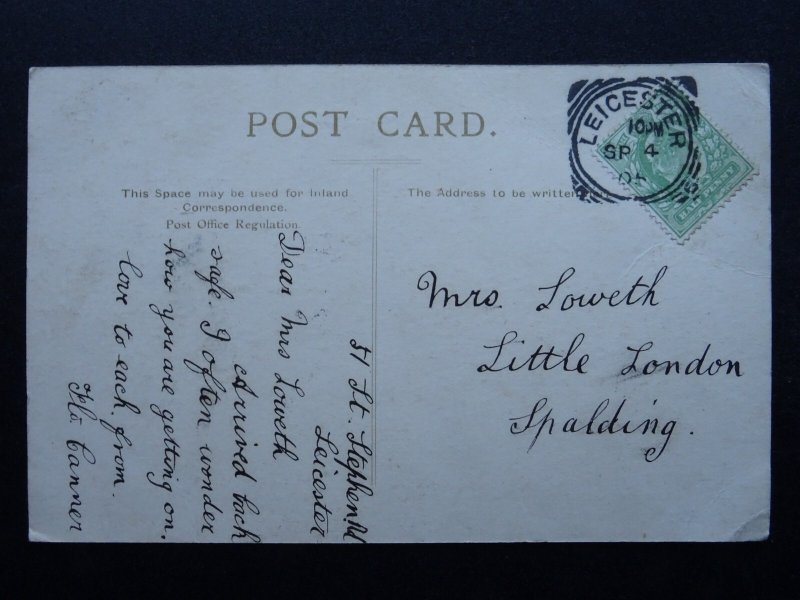 POST CARD.
This Space may be used for Inland
Correspondence.
Post Office Regulation.
The Address to be written
LEICESTER
10 PM
SP 4
05
HALFPENNY
Mrs. Loweth
Little London
Spalding.
51 St. Stephen. Rd
Leicester
Dear Mrs Loweth
Arrived back
safe. I often wonder
how you are getting on.
love to each from.
Flo Canner